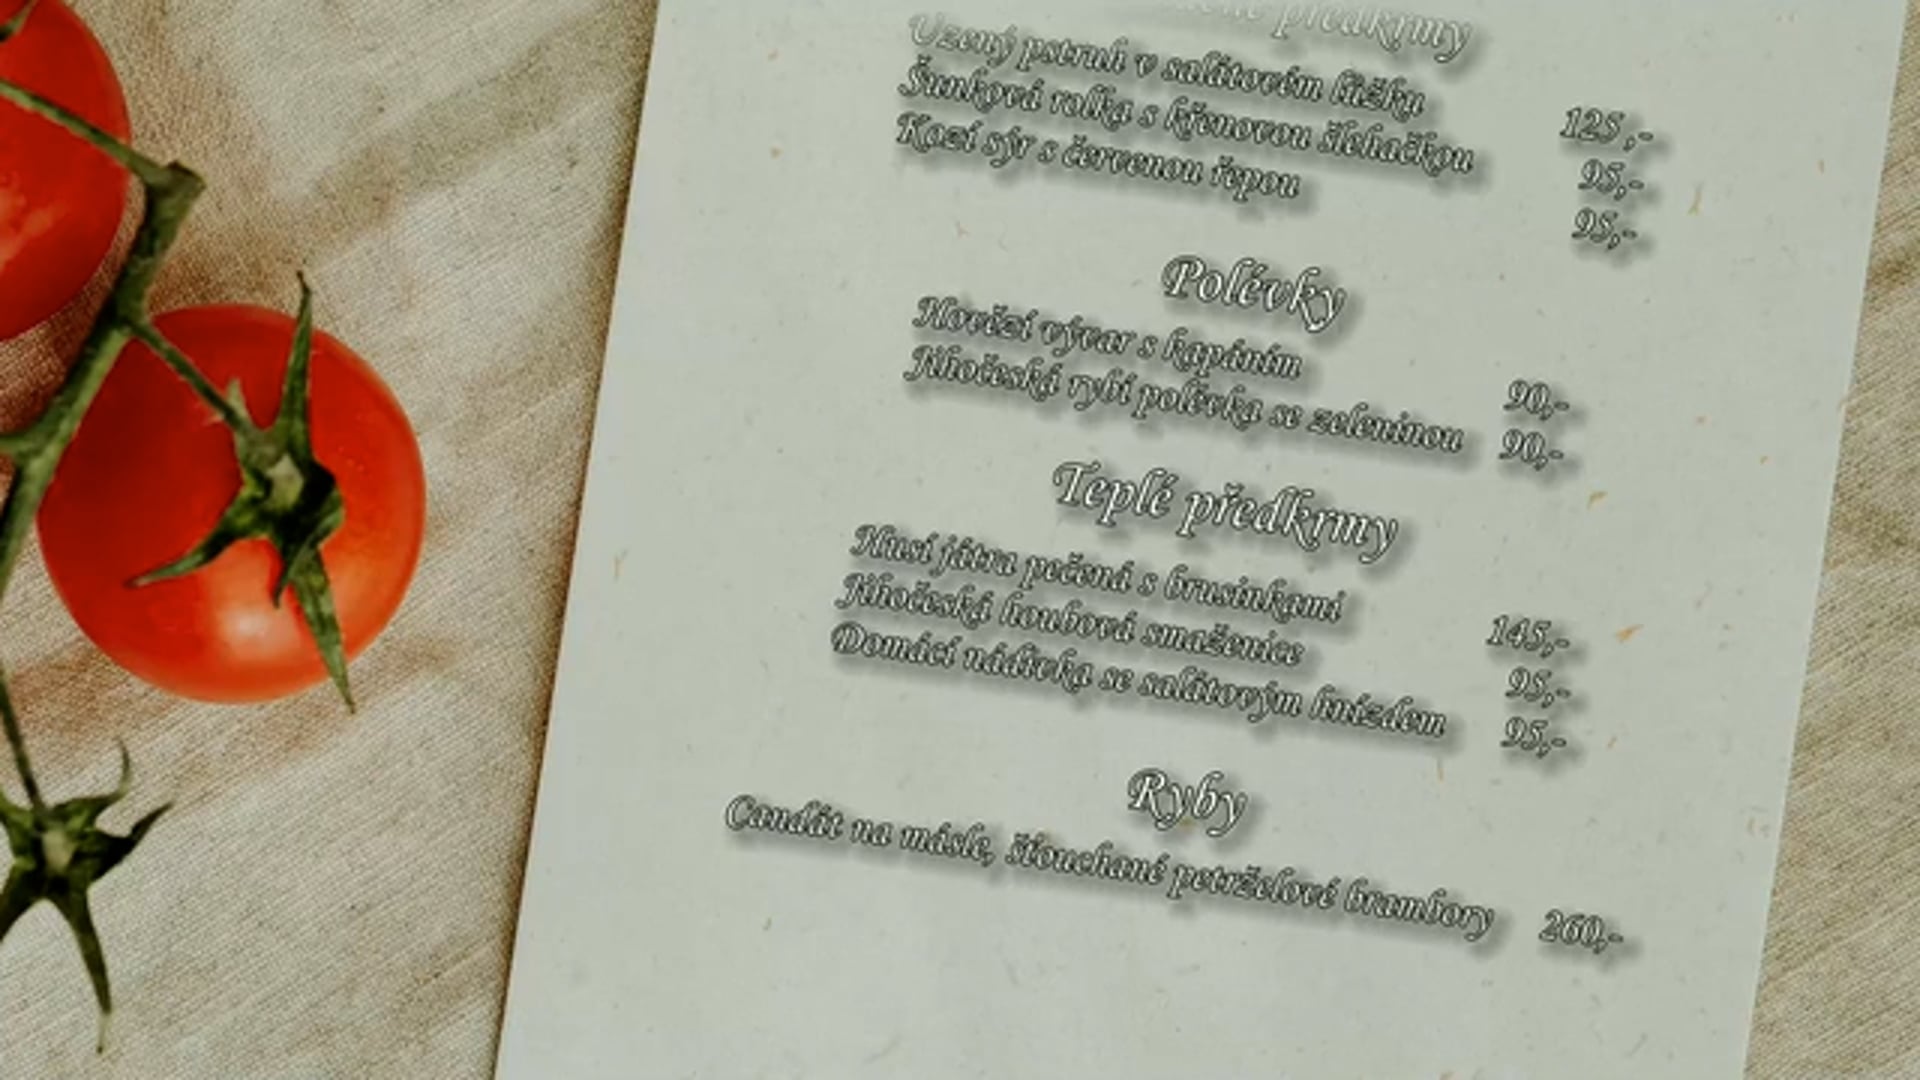 předkrmy
Uzený pstruh v salátovém lůžku 125,-
Šunková rolka s křenovou šlehačkou 95,-
Kozí sýr s červenou řepou 95,-
Polévky
Hovězí vývar s kapáním 90,-
Jihočeská rybí polévka se zeleninou 90,-
Teplé předkrmy
Husí játra pečená s brusinkami 145,-
Jihočeská houbová smaženice 95,-
Domácí nádivka se salátovým hnízdem 95,-
Ryby
Candát na másle, šťouchané petrželové brambory 260,-